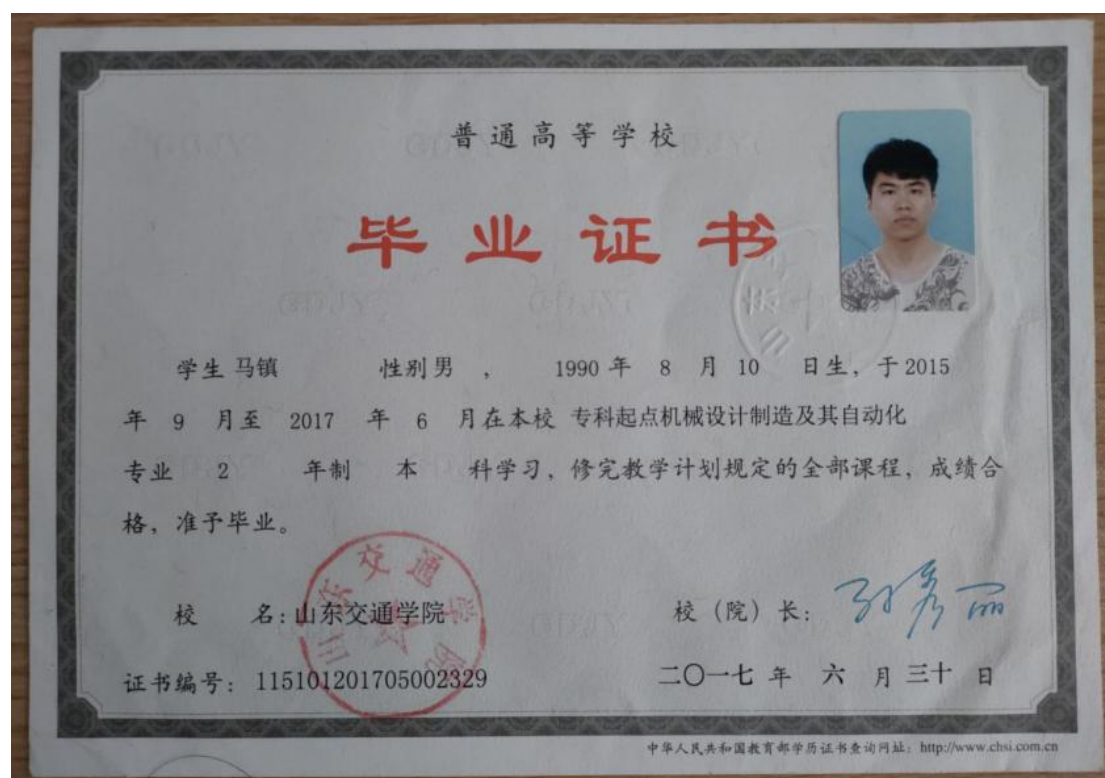 普通高等学校
毕业证书
学生 马镇 性别 男 , 1990 年 8 月 10 日生, 于 2015
年 9 月至 2017 年 6 月在本校 专科起点机械设计制造及其自动化
专业 2 年制 本 科学习, 修完教学计划规定的全部课程, 成绩合
格, 准予毕业。
山东交通学院
校 名: 山东交通学院
校 (院) 长:
证书编号: 115101201705002329
二〇一七 年 六 月 三十 日
中华人民共和国教育部学历证书查询网址: http://www.chsi.com.cn